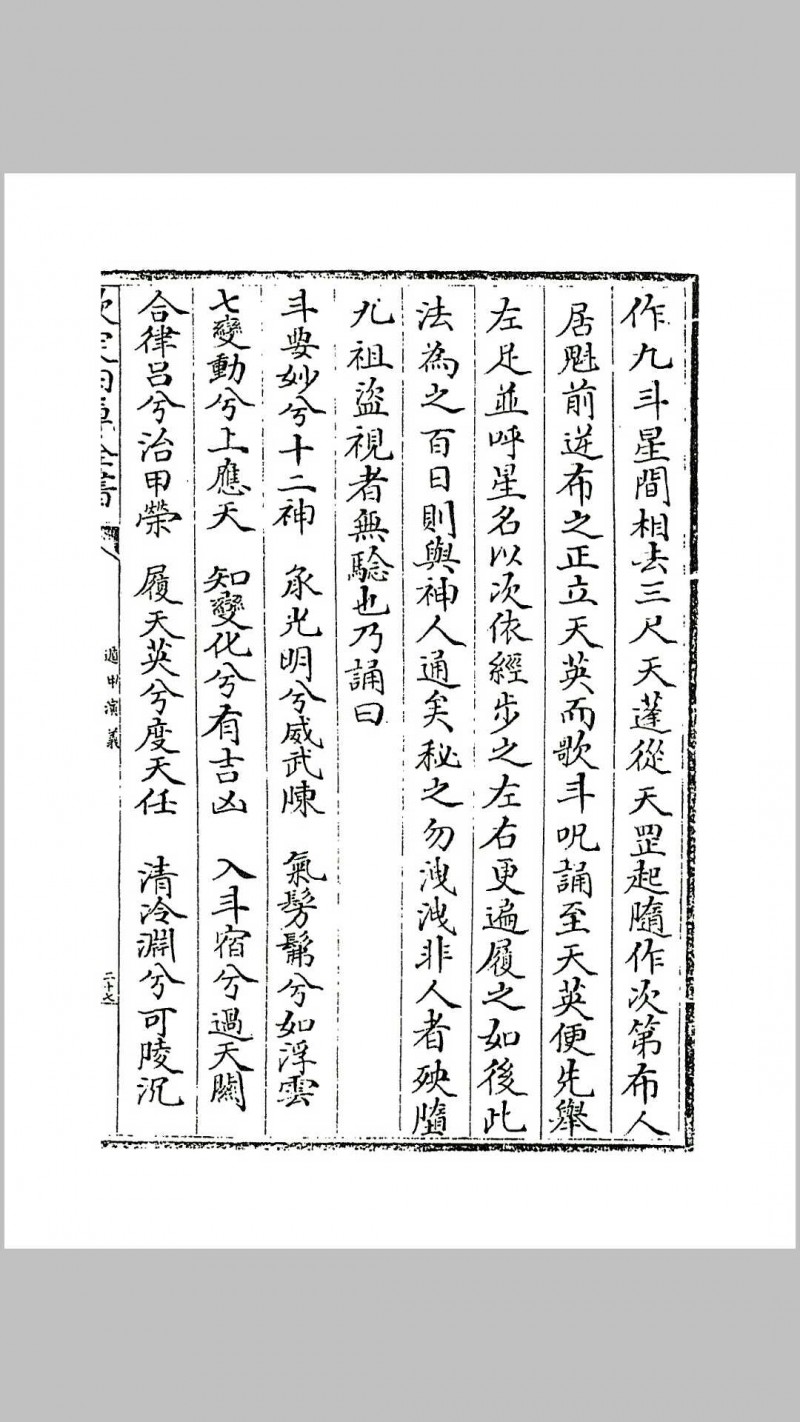 作九斗星間相去三尺天蓬從天罡起隨作次第布人
居魁前逆布之正立天英而歌斗呪誦至天英便先舉
左足並呼星名以次依經步之左右更遍履之如後此
法為之百日則與神人通矣秘之勿洩洩非人者殃墮
九祖盜視者無驗也乃誦曰
斗要妙兮十二神　承光明兮威武陳　氣髣髴兮如浮雲
七變動兮上應天　知變化兮有吉凶　入斗宿兮過天關
合律呂兮治甲榮　履天英兮度天任　清冷淵兮可陵沉
遁甲演義
二十七